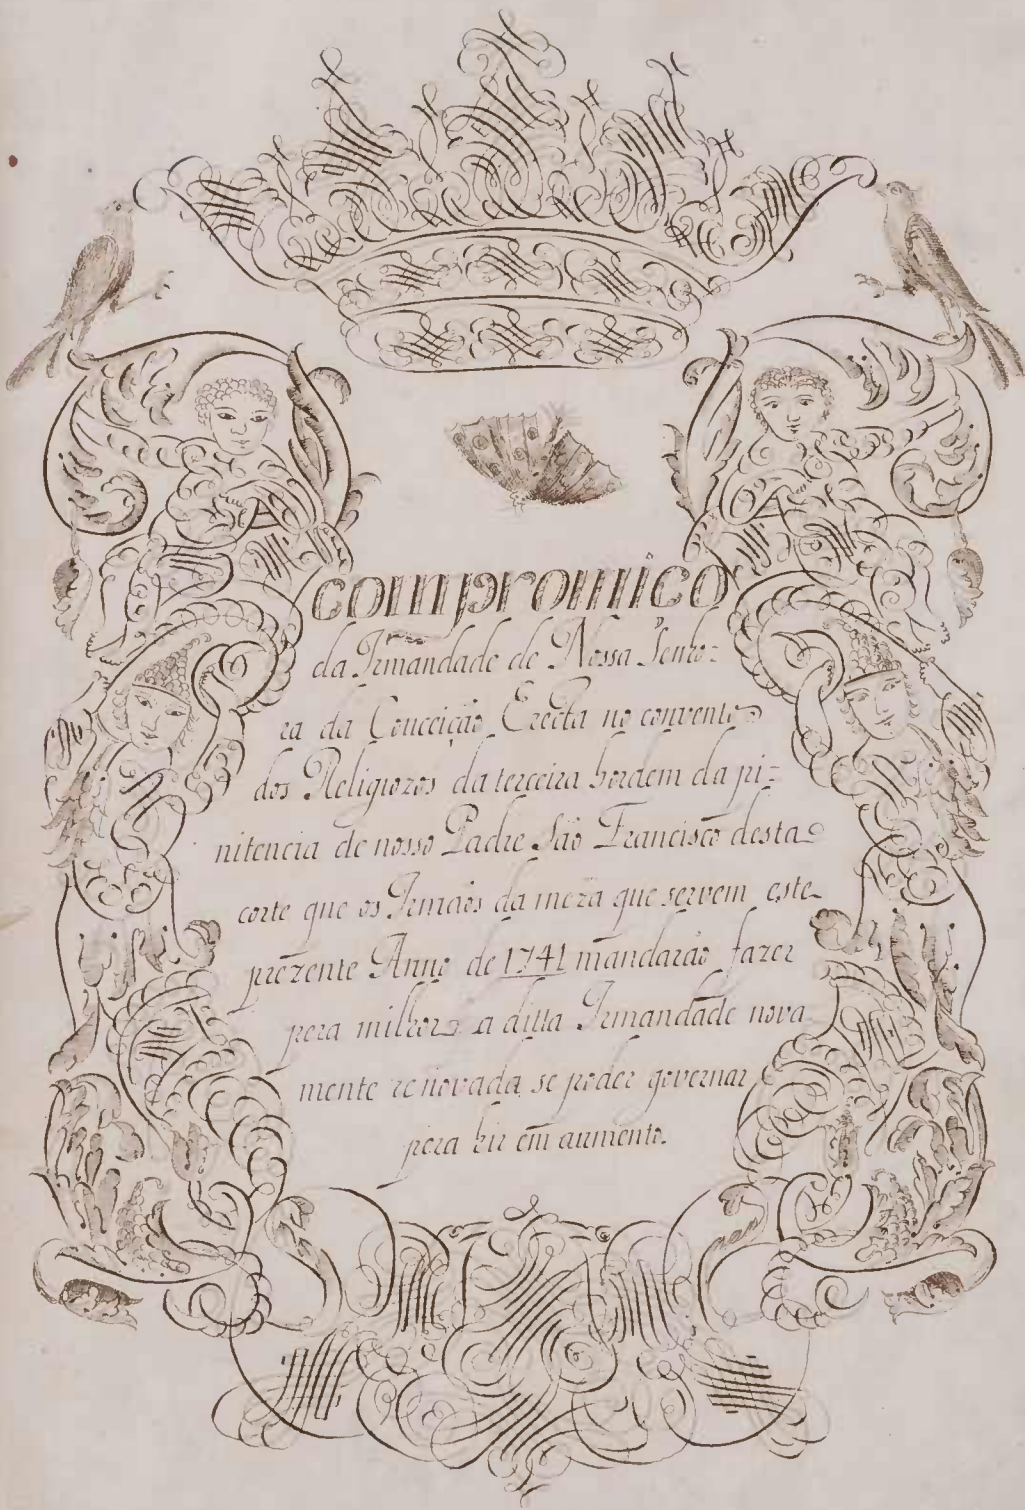 compromiço
da Irmandade de Nossa Senho-
ra da Conceição Erecta no convento
dos Religiozos da terceira hordem da pi-
nitencia de nosso Padre São Francisco desta
corte que os Irmãos da meza que servem este
prezente Anno de 1741 mandarão fazer
pera milhor a ditta Irmandade nova
mente renovada se poder governar
pera hir em aumento.